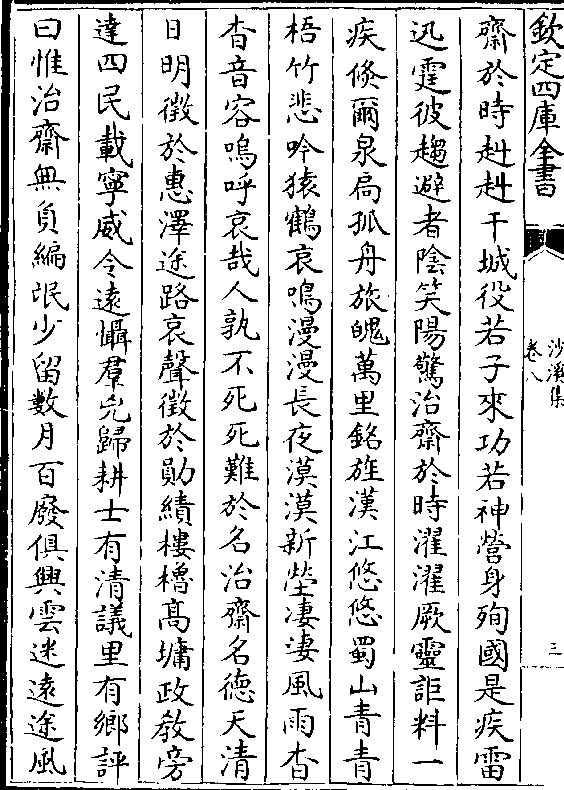 欽定四庫全書
沙溪集
卷八
三
齋於時赳赳干城役若子來功若神營身殉國是疾雷
迅霆彼趨避者陰笑陽驚治齋於時濯濯厥靈詎料一
疾倏爾泉扃孤舟旅魄萬里銘旌漢江悠悠蜀山青青
梧竹悲吟猿鶴哀鳴漫漫長夜漠漠新塋凄凄風雨杳
杳音容嗚呼哀哉人孰不死死難於名治齋名德天清
日明徵於惠澤途路哀聲徵於勛績樓櫓髙墉政教旁
達四民載寧威令遠懾羣兇歸耕士有清議里有鄉評
曰惟治齋無負編氓少留數月百廢俱興雲迷遠途風